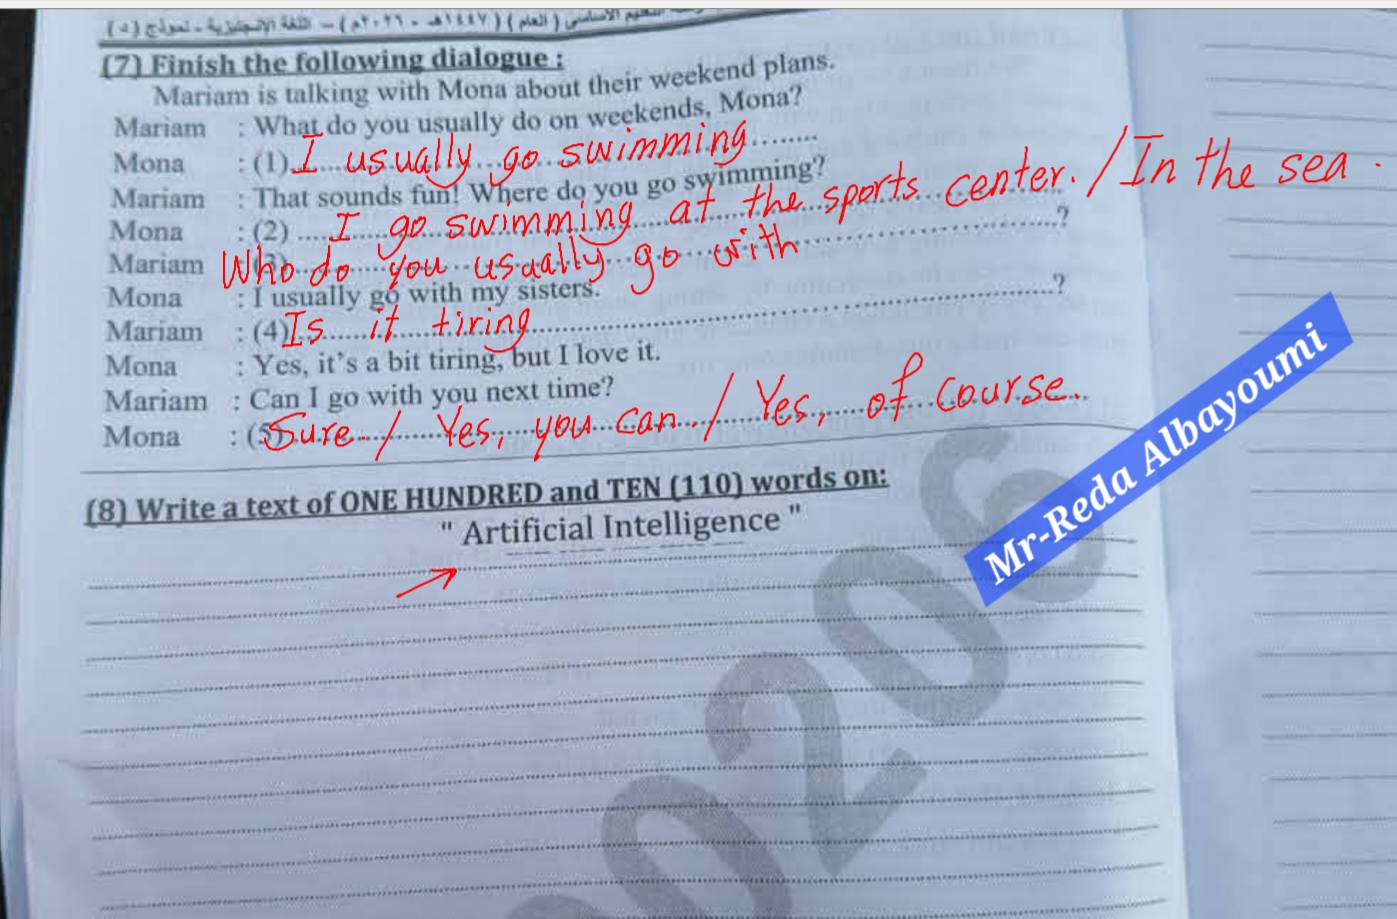 الأساسى ( العام ) ( ١٤٤٧هـ - ٢٠٢٦م ) – اللغة الإنجليزية - نموذج (٥)
(7) Finish the following dialogue :
Mariam is talking with Mona about their weekend plans.
Mariam : What do you usually do on weekends, Mona?
Mona : (1) I usually go swimming
Mariam : That sounds fun! Where do you go swimming?
Mona : (2) I go swimming at the sports center. / In the sea.
Mariam (3) Who do you usually go with ?
Mona : I usually go with my sisters.
Mariam : (4) Is it tiring ?
Mona : Yes, it's a bit tiring, but I love it.
Mariam : Can I go with you next time?
Mona : (5) Sure. / Yes, you can. / Yes, of course.
(8) Write a text of ONE HUNDRED and TEN (110) words on:
" Artificial Intelligence "
Mr-Reda Albayoumi